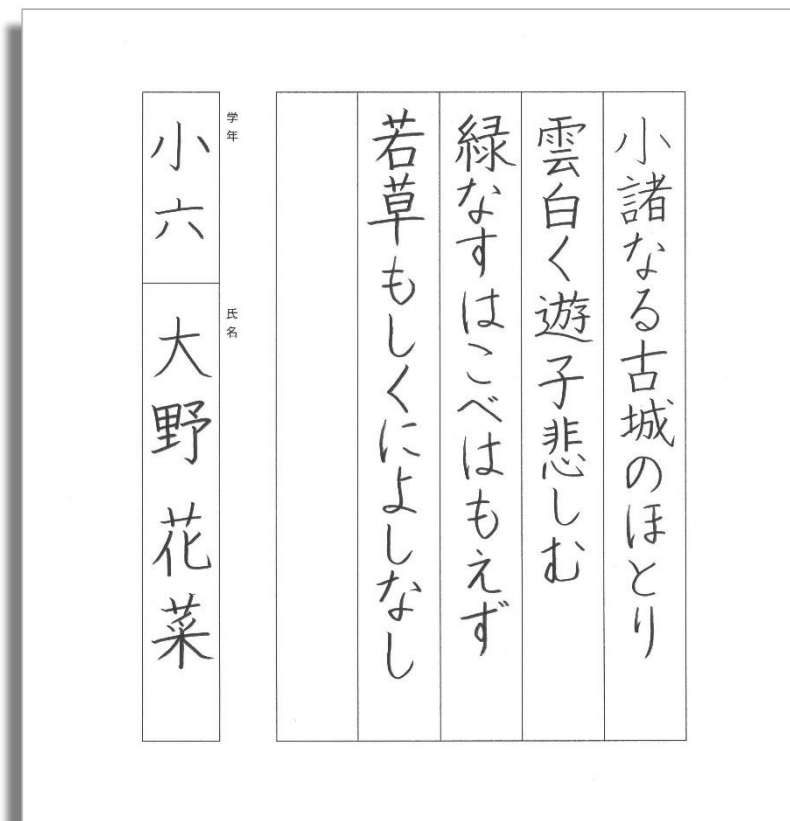 小諸なる古城のほとり
雲白く遊子悲しむ
緑なすはこべはもえず
若草もしくによしなし
学年
小六
氏名
大野 花菜